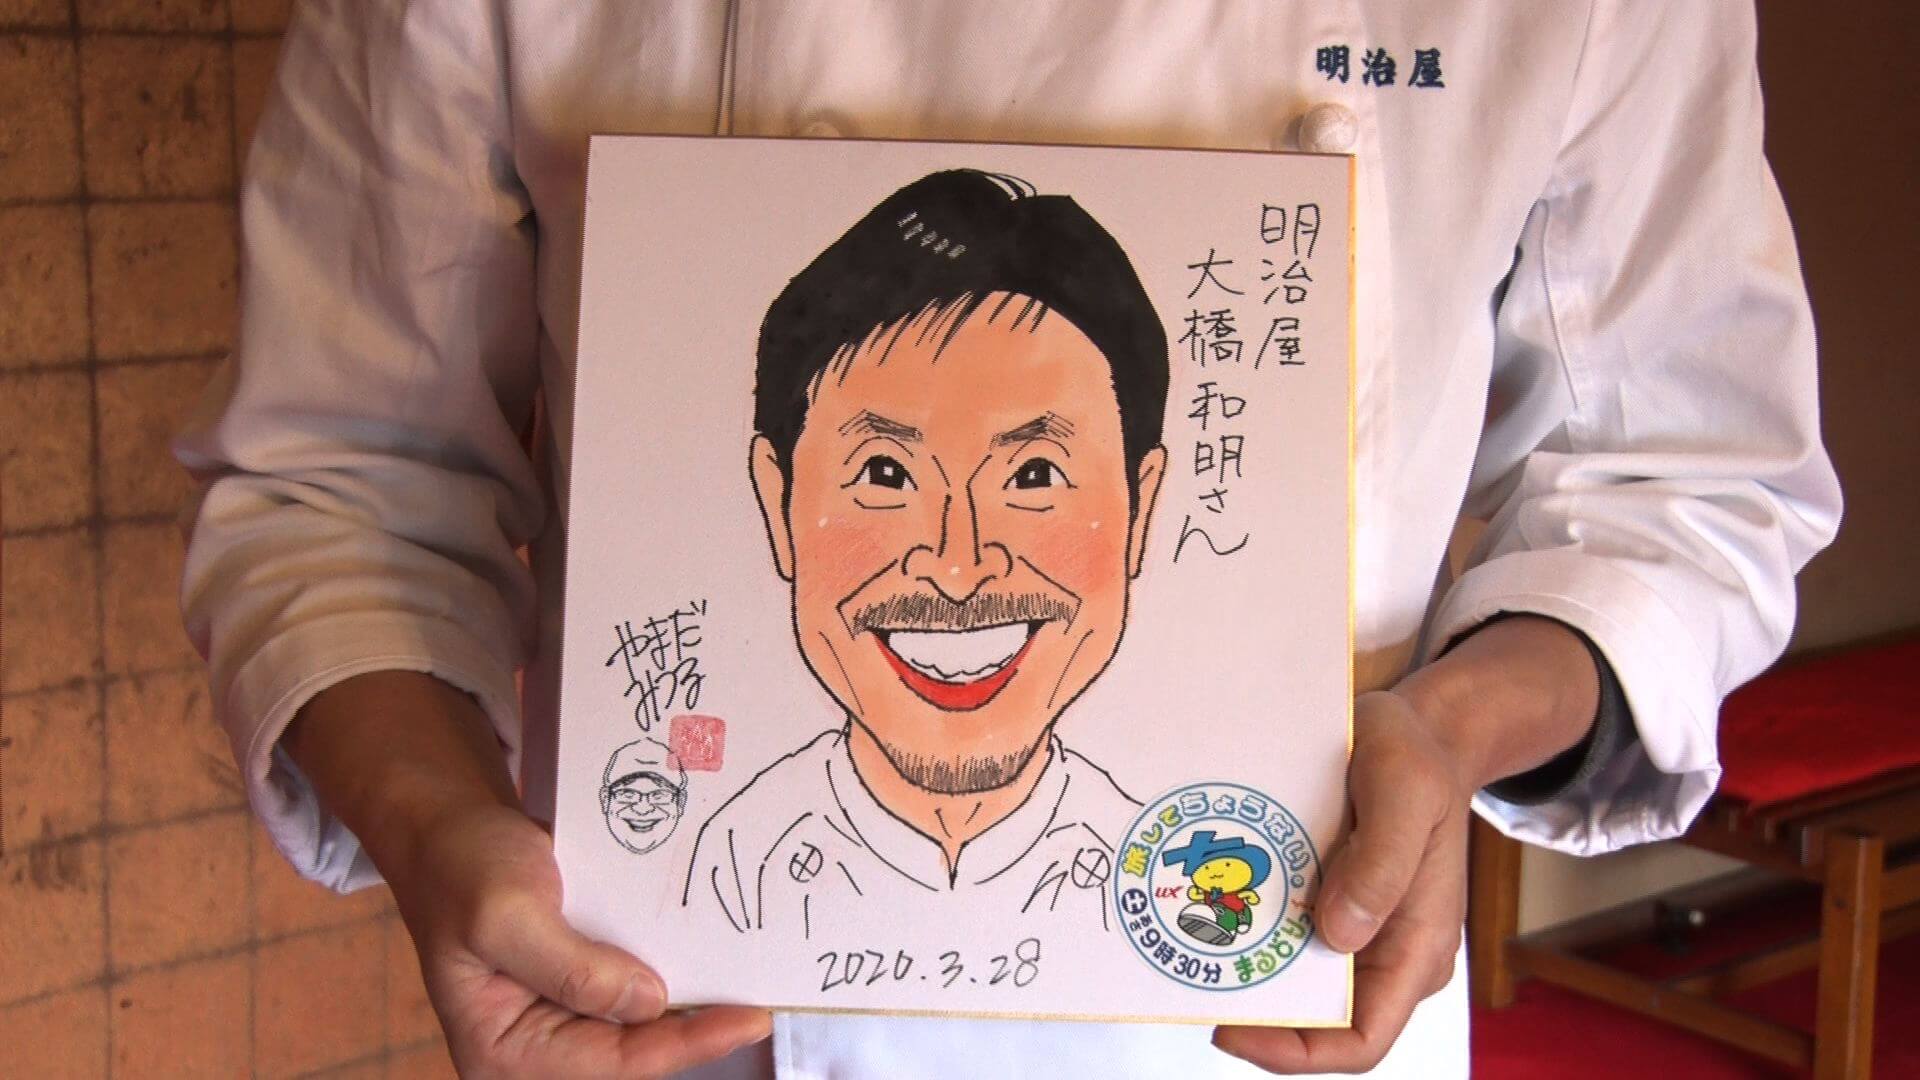 明治屋
明治屋
大橋和明さん
やまだ
みつる
2020.3.28
旅してちょうない。
UX
土あさ9時30分
まるどりっ!